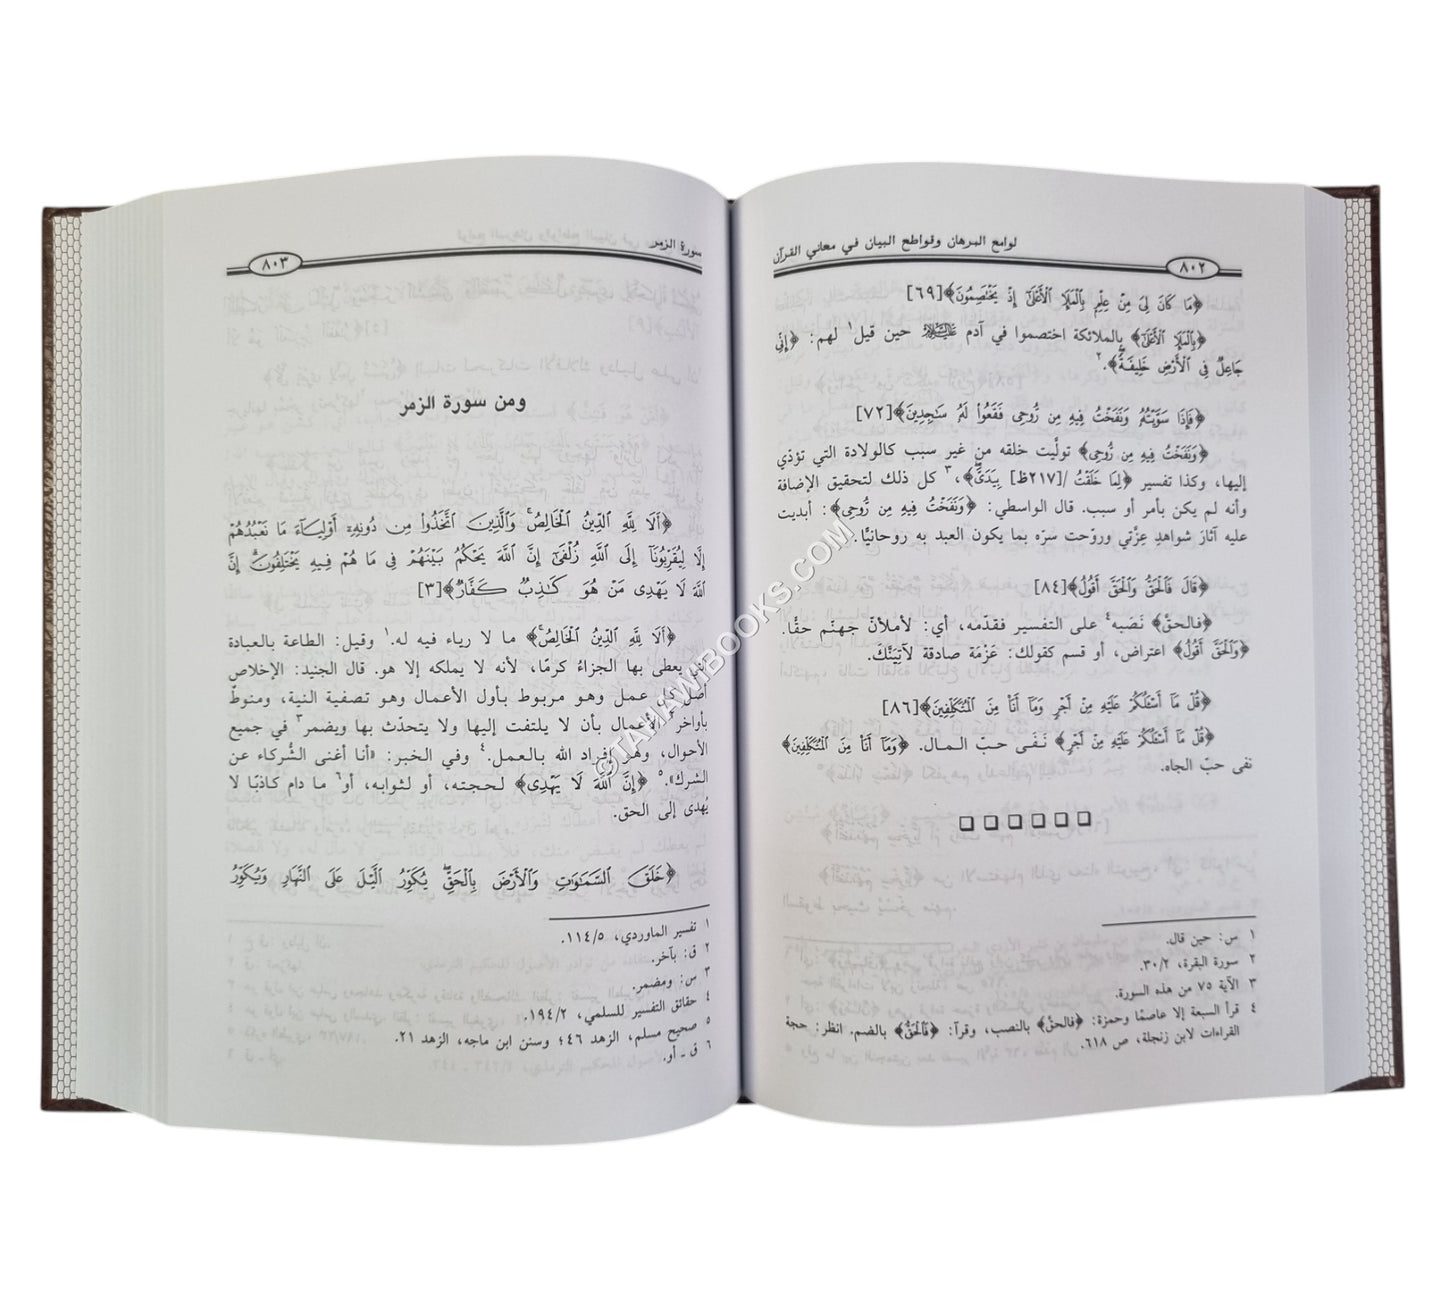 لوامع البرهان وقواطع البيان في معاني القرآن
٨٠٢
﴿مَا كَانَ لِىَ مِنْ عِلْمٍ بِٱلْمَلَإِ ٱلْأَعْلَىٰٓ إِذْ يَخْتَصِمُونَ﴾[٦٩]
﴿بِٱلْمَلَإِ ٱلْأَعْلَىٰٓ﴾ بالملائكة اختصموا في آدم عَلَيْهِ السَّلَام حين قيل١ لهم: ﴿إِنِّى
جَاعِلٌ فِى ٱلْأَرْضِ خَلِيفَةً﴾.٢
﴿فَإِذَا سَوَّيْتُهُۥ وَنَفَخْتُ فِيهِ مِن رُّوحِى فَقَعُوا۟ لَهُۥ سَـٰجِدِينَ﴾[٧٢]
﴿وَنَفَخْتُ فِيهِ مِن رُّوحِى﴾ تولَّيت خلقه من غير سبب كالولادة التي تؤدّي
إليها، وكذا تفسير ﴿لِمَا خَلَقْتُ /[٢١٧ظ] بِيَدَىَّ﴾،٣ كل ذلك لتحقيق الإضافة
وأنه لم يكن بأمر أو سبب. قال الواسطي: ﴿وَنَفَخْتُ فِيهِ مِن رُّوحِى﴾: أبديت
عليه آثارَ شواهدِ عِزَّتي وروّحت سَرّه بما يكون العبد به روحانيًّا.
﴿قَالَ فَٱلْحَقُّ وَٱلْحَقَّ أَقُولُ﴾[٨٤]
﴿فالحقَّ﴾ نَصَبه٤ على التفسير فقدّمه، أي: لأملأنّ جهنّم حقًّا.
﴿وَٱلْحَقَّ أَقُولُ﴾ اعتراض، أو قسم كقولك: عَزْمَة صادقة لآتِيَنَّكَ.
﴿قُلْ مَآ أَسْـَٔلُكُمْ عَلَيْهِ مِنْ أَجْرٍ وَمَآ أَنَا۠ مِنَ ٱلْمُتَكَلِّفِينَ﴾[٨٦]
﴿قُلْ مَآ أَسْـَٔلُكُمْ عَلَيْهِ مِنْ أَجْرٍ﴾ نَفَى حبّ المال. ﴿وَمَآ أَنَا۠ مِنَ ٱلْمُتَكَلِّفِينَ﴾
نفى حبّ الجاه.
١ س: حين قال.
٢ سورة البقرة، ٣٠/٢.
٣ الآية ٧٥ من هذه السورة.
٤ قرأ السبعة إلا عاصمًا وحمزة: ﴿فالحقَّ﴾ بالنصب، وقرآ: ﴿فَٱلْحَقُّ﴾ بالضم. انظر: حجة
القراءات لابن زنجلة، ص ٦١٨.
سورة الزمر
٨٠٣
ومن سورة الزمر
﴿أَلَا لِلَّهِ ٱلدِّينُ ٱلْخَالِصُ ۚ وَٱلَّذِينَ ٱتَّخَذُوا۟ مِن دُونِهِۦٓ أَوْلِيَآءَ مَا نَعْبُدُهُمْ
إِلَّا لِيُقَرِّبُونَآ إِلَى ٱللَّهِ زُلْفَىٰٓ إِنَّ ٱللَّهَ يَحْكُمُ بَيْنَهُمْ فِى مَا هُمْ فِيهِ يَخْتَلِفُونَ ۗ إِنَّ
ٱللَّهَ لَا يَهْدِى مَنْ هُوَ كَـٰذِبٌ كَفَّارٌ﴾[٣]
﴿أَلَا لِلَّهِ ٱلدِّينُ ٱلْخَالِصُ ۚ﴾ ما لا رياء فيه له.١ وقيل: الطاعة بالعبادة
يعطى بها الجزاءُ كرمًا، لأنه لا يملكه إلا هو. قال الجنيد: الإخلاص
أصل كل عمل وهو مربوط بأول الأعمال وهو تصفية النية، ومنوطٌ
بأواخر٢ الأعمال بأن لا يلتفت إليها ولا يتحدّث بها ويضمر٣ في جميع
الأحوال، وهو إفراد الله بالعمل.٤ وفي الخبر: «أنا أغنى الشُّركاء عن
الشرك».٥ ﴿إِنَّ ٱللَّهَ لَا يَهْدِى﴾ لحجته، أو لثوابه، أو٦ ما دام كاذبًا لا
يُهدى إلى الحق.
﴿خَلَقَ ٱلسَّمَـٰوَٰتِ وَٱلْأَرْضَ بِٱلْحَقِّ ۖ يُكَوِّرُ ٱلَّيْلَ عَلَى ٱلنَّهَارِ وَيُكَوِّرُ
١ تفسير الماوردي، ١١٤/٥.
٢ ق: بآخر.
٣ س: ومضمر.
٤ حقائق التفسير للسلمي، ١٩٤/٢.
٥ صحيح مسلم، الزهد ٤٦؛ وسنن ابن ماجه، الزهد ٢١.
٦ ق ـ أو.
©TAHAWIBOOKS.COM